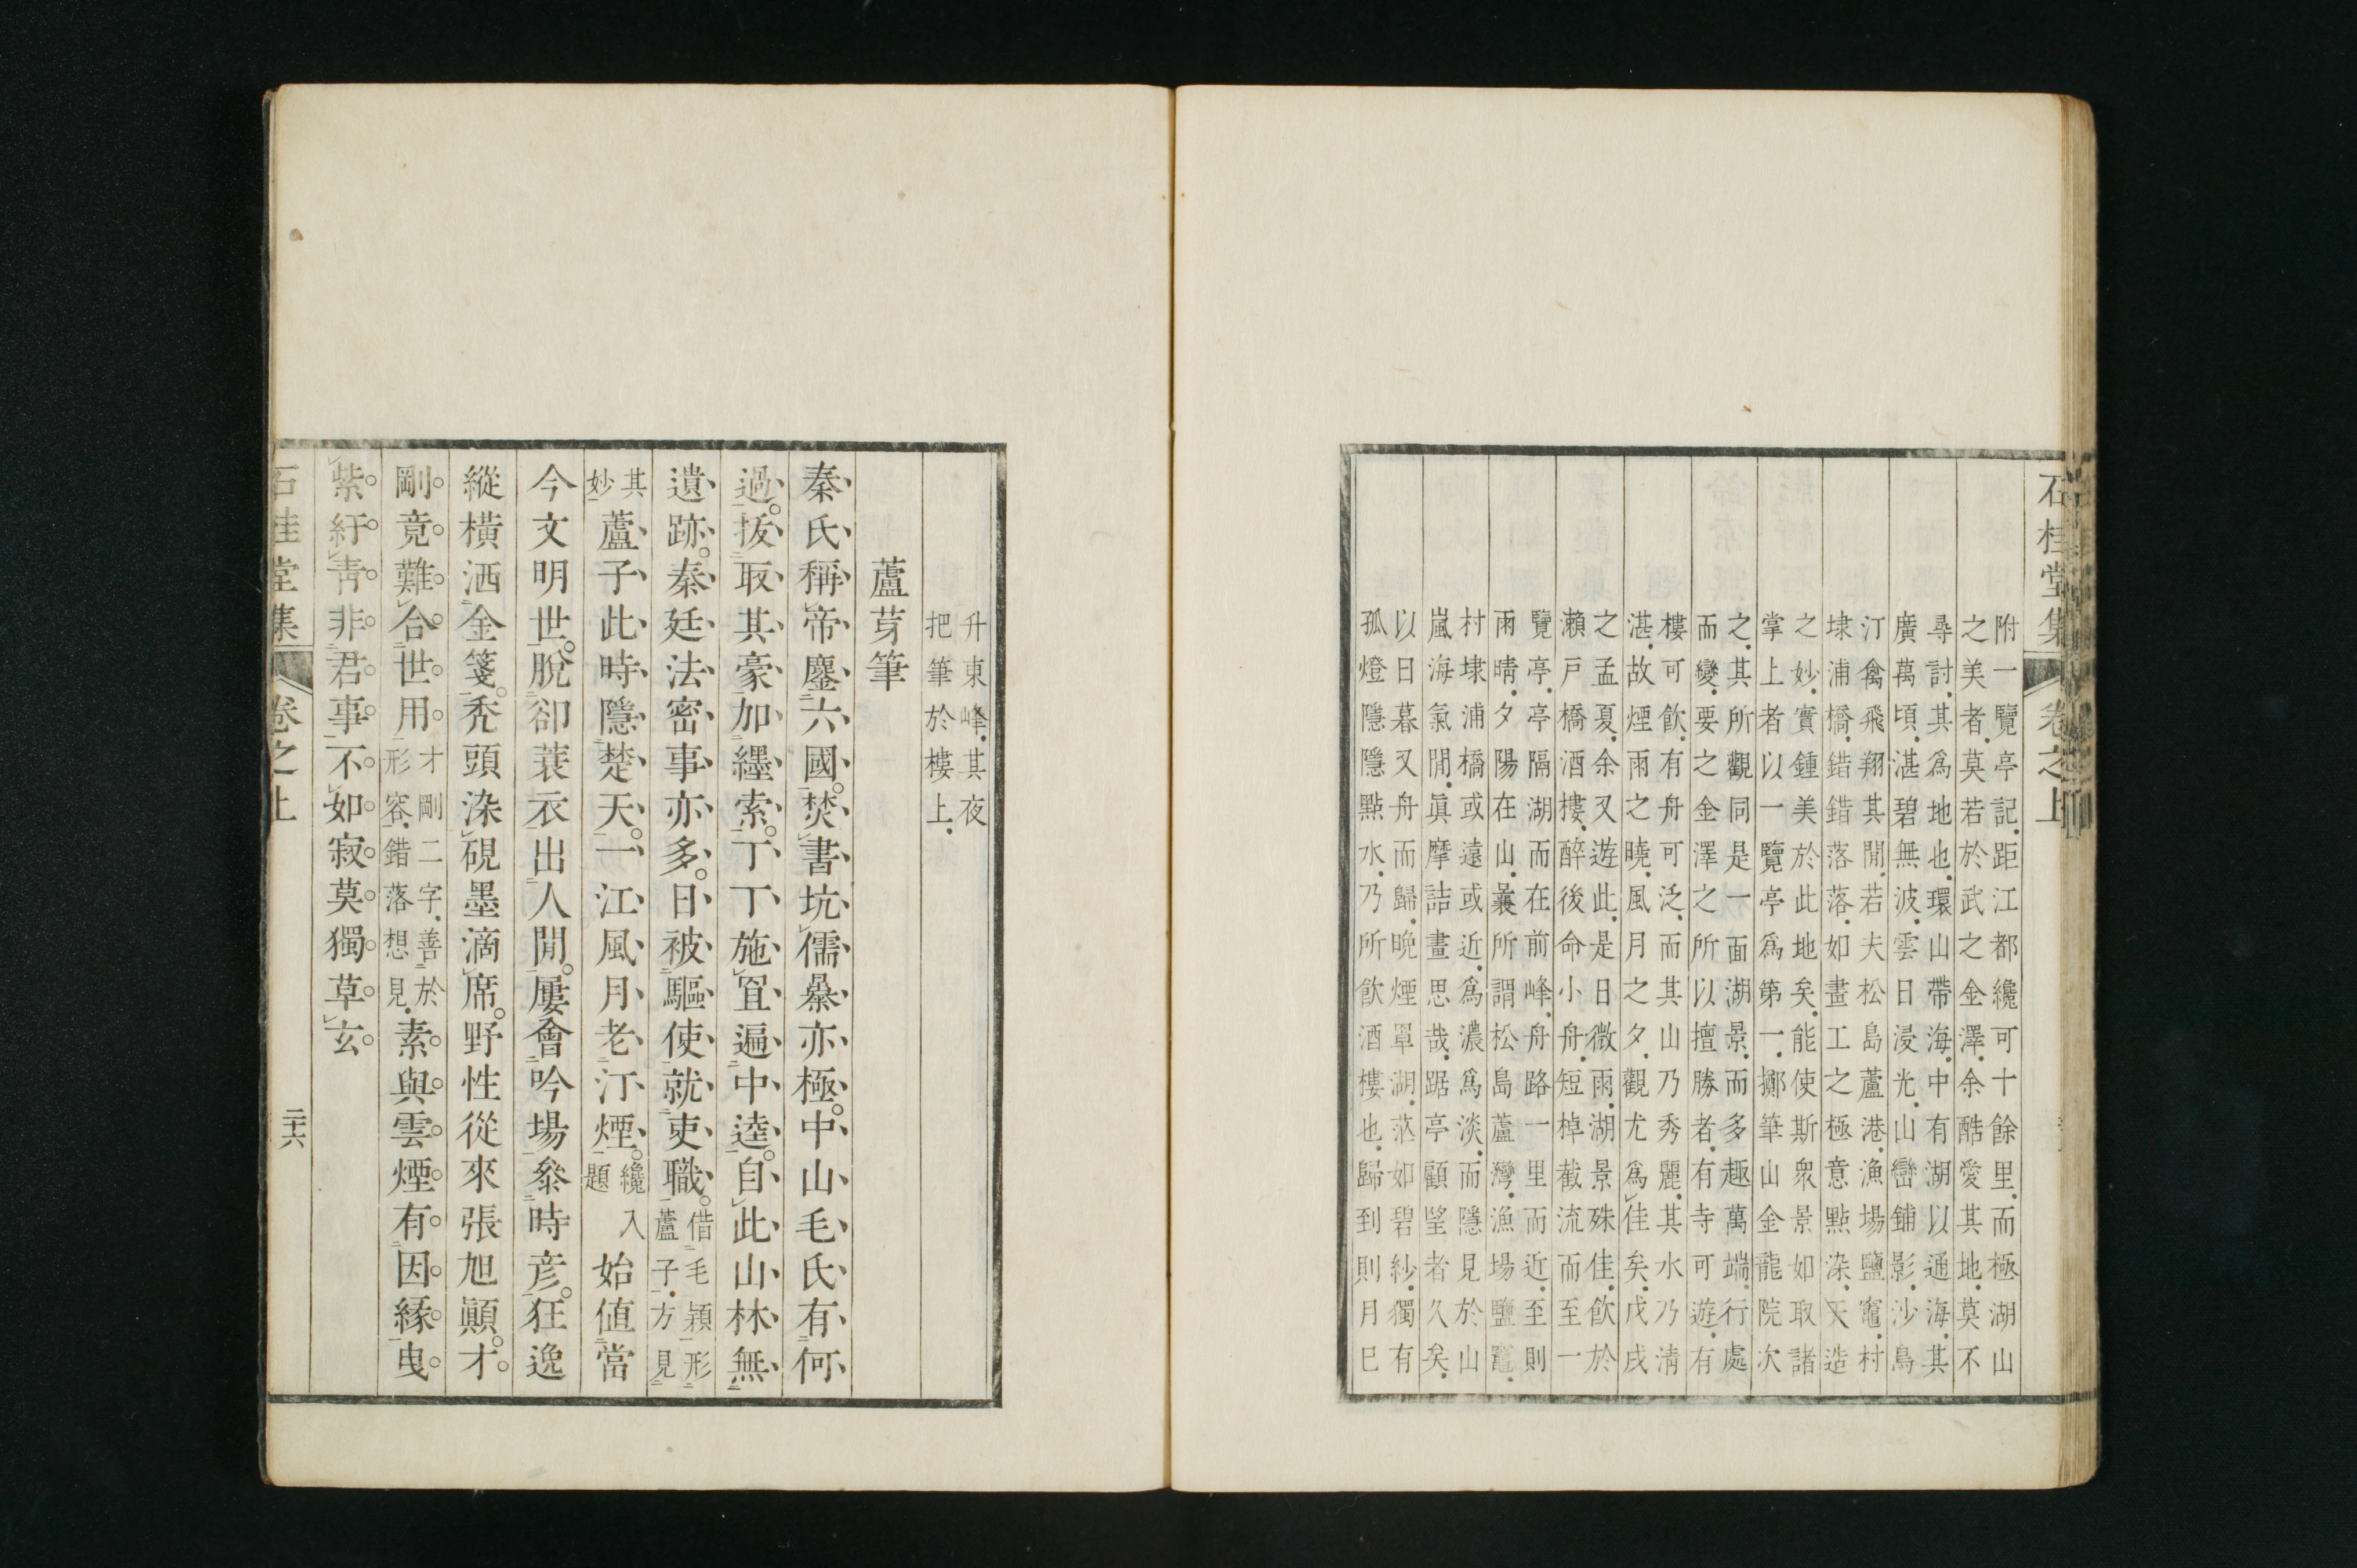 石桂堂集 卷之上
附一覽亭記距江都纔可十餘里而極湖山
之美者莫若於武之金澤余酷愛其地莫不
尋討其爲地也環山帶海中有湖以通海其
廣萬頃湛碧無波雲日浸光山巒鋪影沙鳥
汀禽飛翔其閒若夫松島蘆港漁場鹽竈村
埭浦橋錯錯落落如畫工之極意點染天造
之妙實鍾美於此地矣能使斯衆景如取諸
掌上者以一覽亭爲第一擲筆山金龍院次
之其所觀同是一面湖景而多趣萬端行處
而變要之金澤之所以擅勝者有寺可遊有
樓可飮有舟可泛而其山乃秀麗其水乃淸
湛故煙雨之曉風月之夕觀尤爲佳矣戊戌
之孟夏余又遊此是日微雨湖景殊佳飮於
瀨戸橋酒樓醉後命小舟短棹截流而至一
覽亭亭隔湖而在前峰舟路一里而近至則
雨晴夕陽在山曩所謂松島蘆灣漁場鹽竈
村埭浦橋或遠或近爲濃爲淡而隱見於山
嵐海氣閒眞摩詰畫思哉踞亭顧望者久矣
以日暮又舟而歸晚煙罩湖茫如碧紗獨有
孤燈隱隱點水乃所飮酒樓也歸到則月已
升東峰其夜
把筆於樓上
蘆芽筆
秦氏稱帝鏖六國焚書坑儒暴亦極中山毛氏有何
過拔取其豪加纆索丁丁施罝遍中逵自此山林無
遺跡秦廷法密事亦多日被驅使就吏職借毛穎形蘆子方見
其妙蘆子此時隱楚天一江風月老汀煙纔入題始値當
今文明世脫卻蓑衣出人閒屢會吟場叅時彦狂逸
縱橫洒金箋禿頭染硯墨滴席野性從來張旭顚才
剛竟難合世用才剛二字善於形容錯落想見素與雲煙有因緣曳
紫紆靑非君事不如寂莫獨草玄
石桂堂集 卷之上 二十六